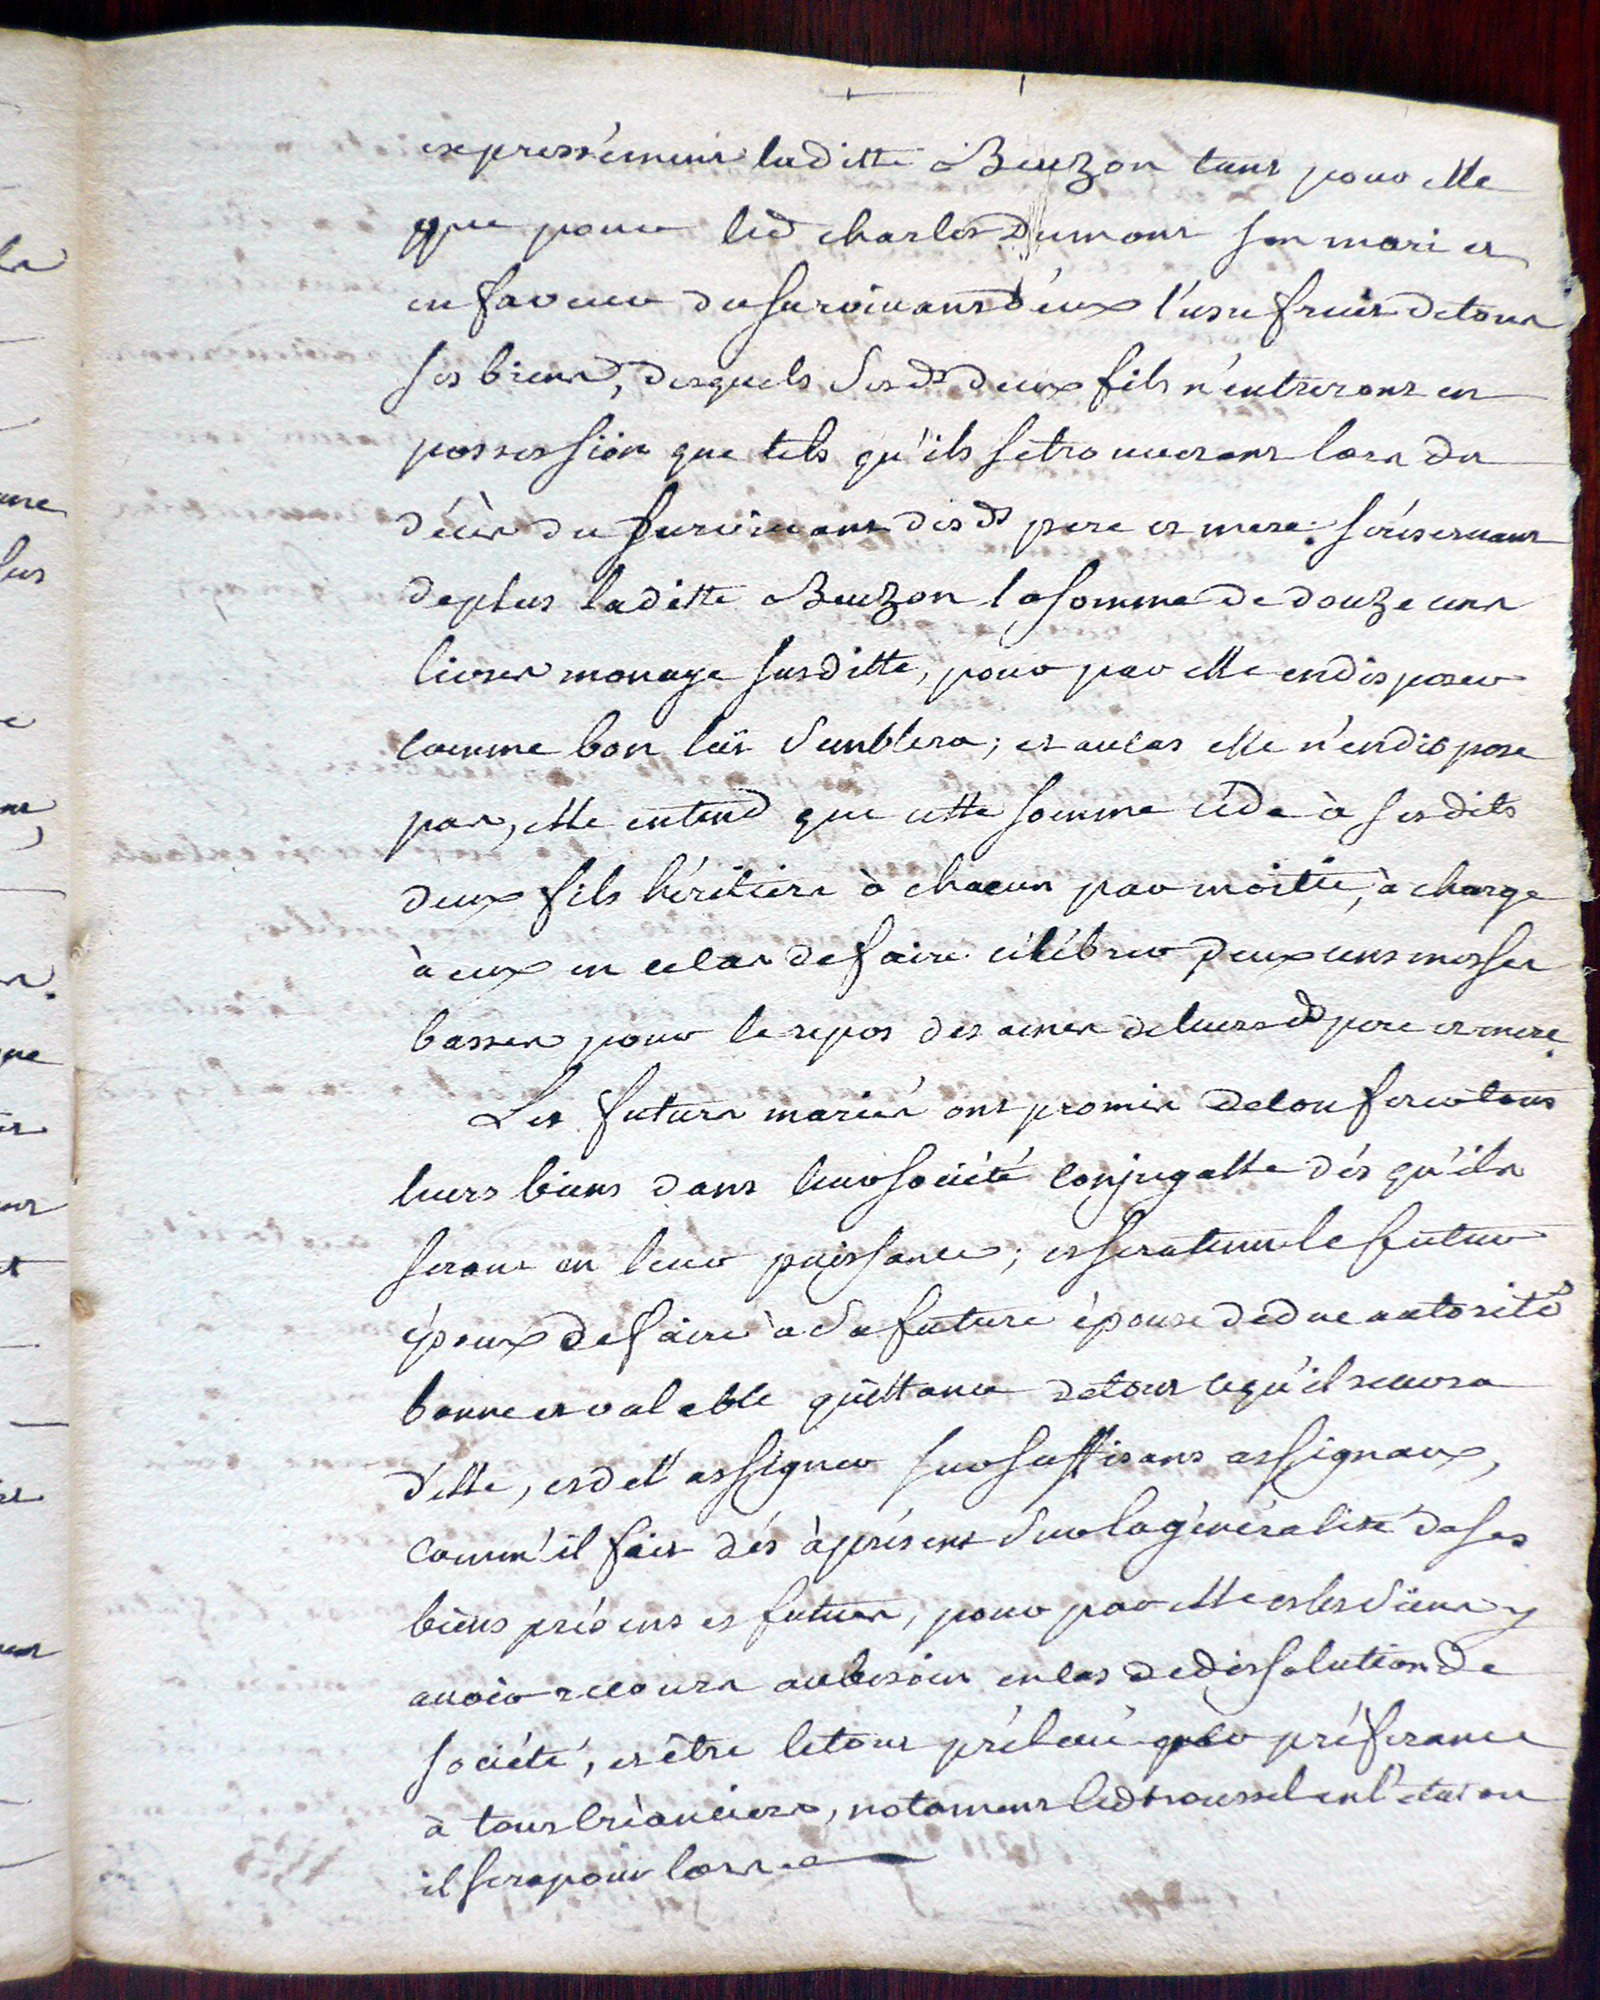 expressément laditte Beuzon tant pour elle
que pour led charles Dumont son mari et
en faveur du survivant d'eux l'usufruit de tous
ses biens, desquels sesds deux fils n'entreront en
possession que tels qu'ils se trouveront lors du
décès du survivant desds pere et mere: se réservant
de plus laditte Beuzon la somme de douze cens
livres monoye susditte, pour par elle en disposer
comme bon luï semblera; et au cas elle n'en dispose
pas, elle entend que cette somme cède à sesdits
deux fils héritiers à chacun par moitié, à charge
à eux en ce cas de faire célébrer deux cens messes
basses pour le repos des ames de leurs ds pere et mere.
Les futurs mariés ont promis de conferer tous
leurs biens dans leur société conjugalle dés qu'ils
seront en leur puissance; et sera tenu le futur
époux de faire à sa future épouse de due autorité
bonne et valable quittance de tout ce qu'il recevra
d'elle, et de l'assigner sur suffisans assignaux,
comm'il fait dés àprésent sur la généralité de ses
biens présens et futurs, pour par elle et les siens y
avoir recours au besoin en cas de dissolution de
société, et être le tout prélevé par préferance
à tous créanciers, notament led troussel en l'etat ou
il sera pour lors